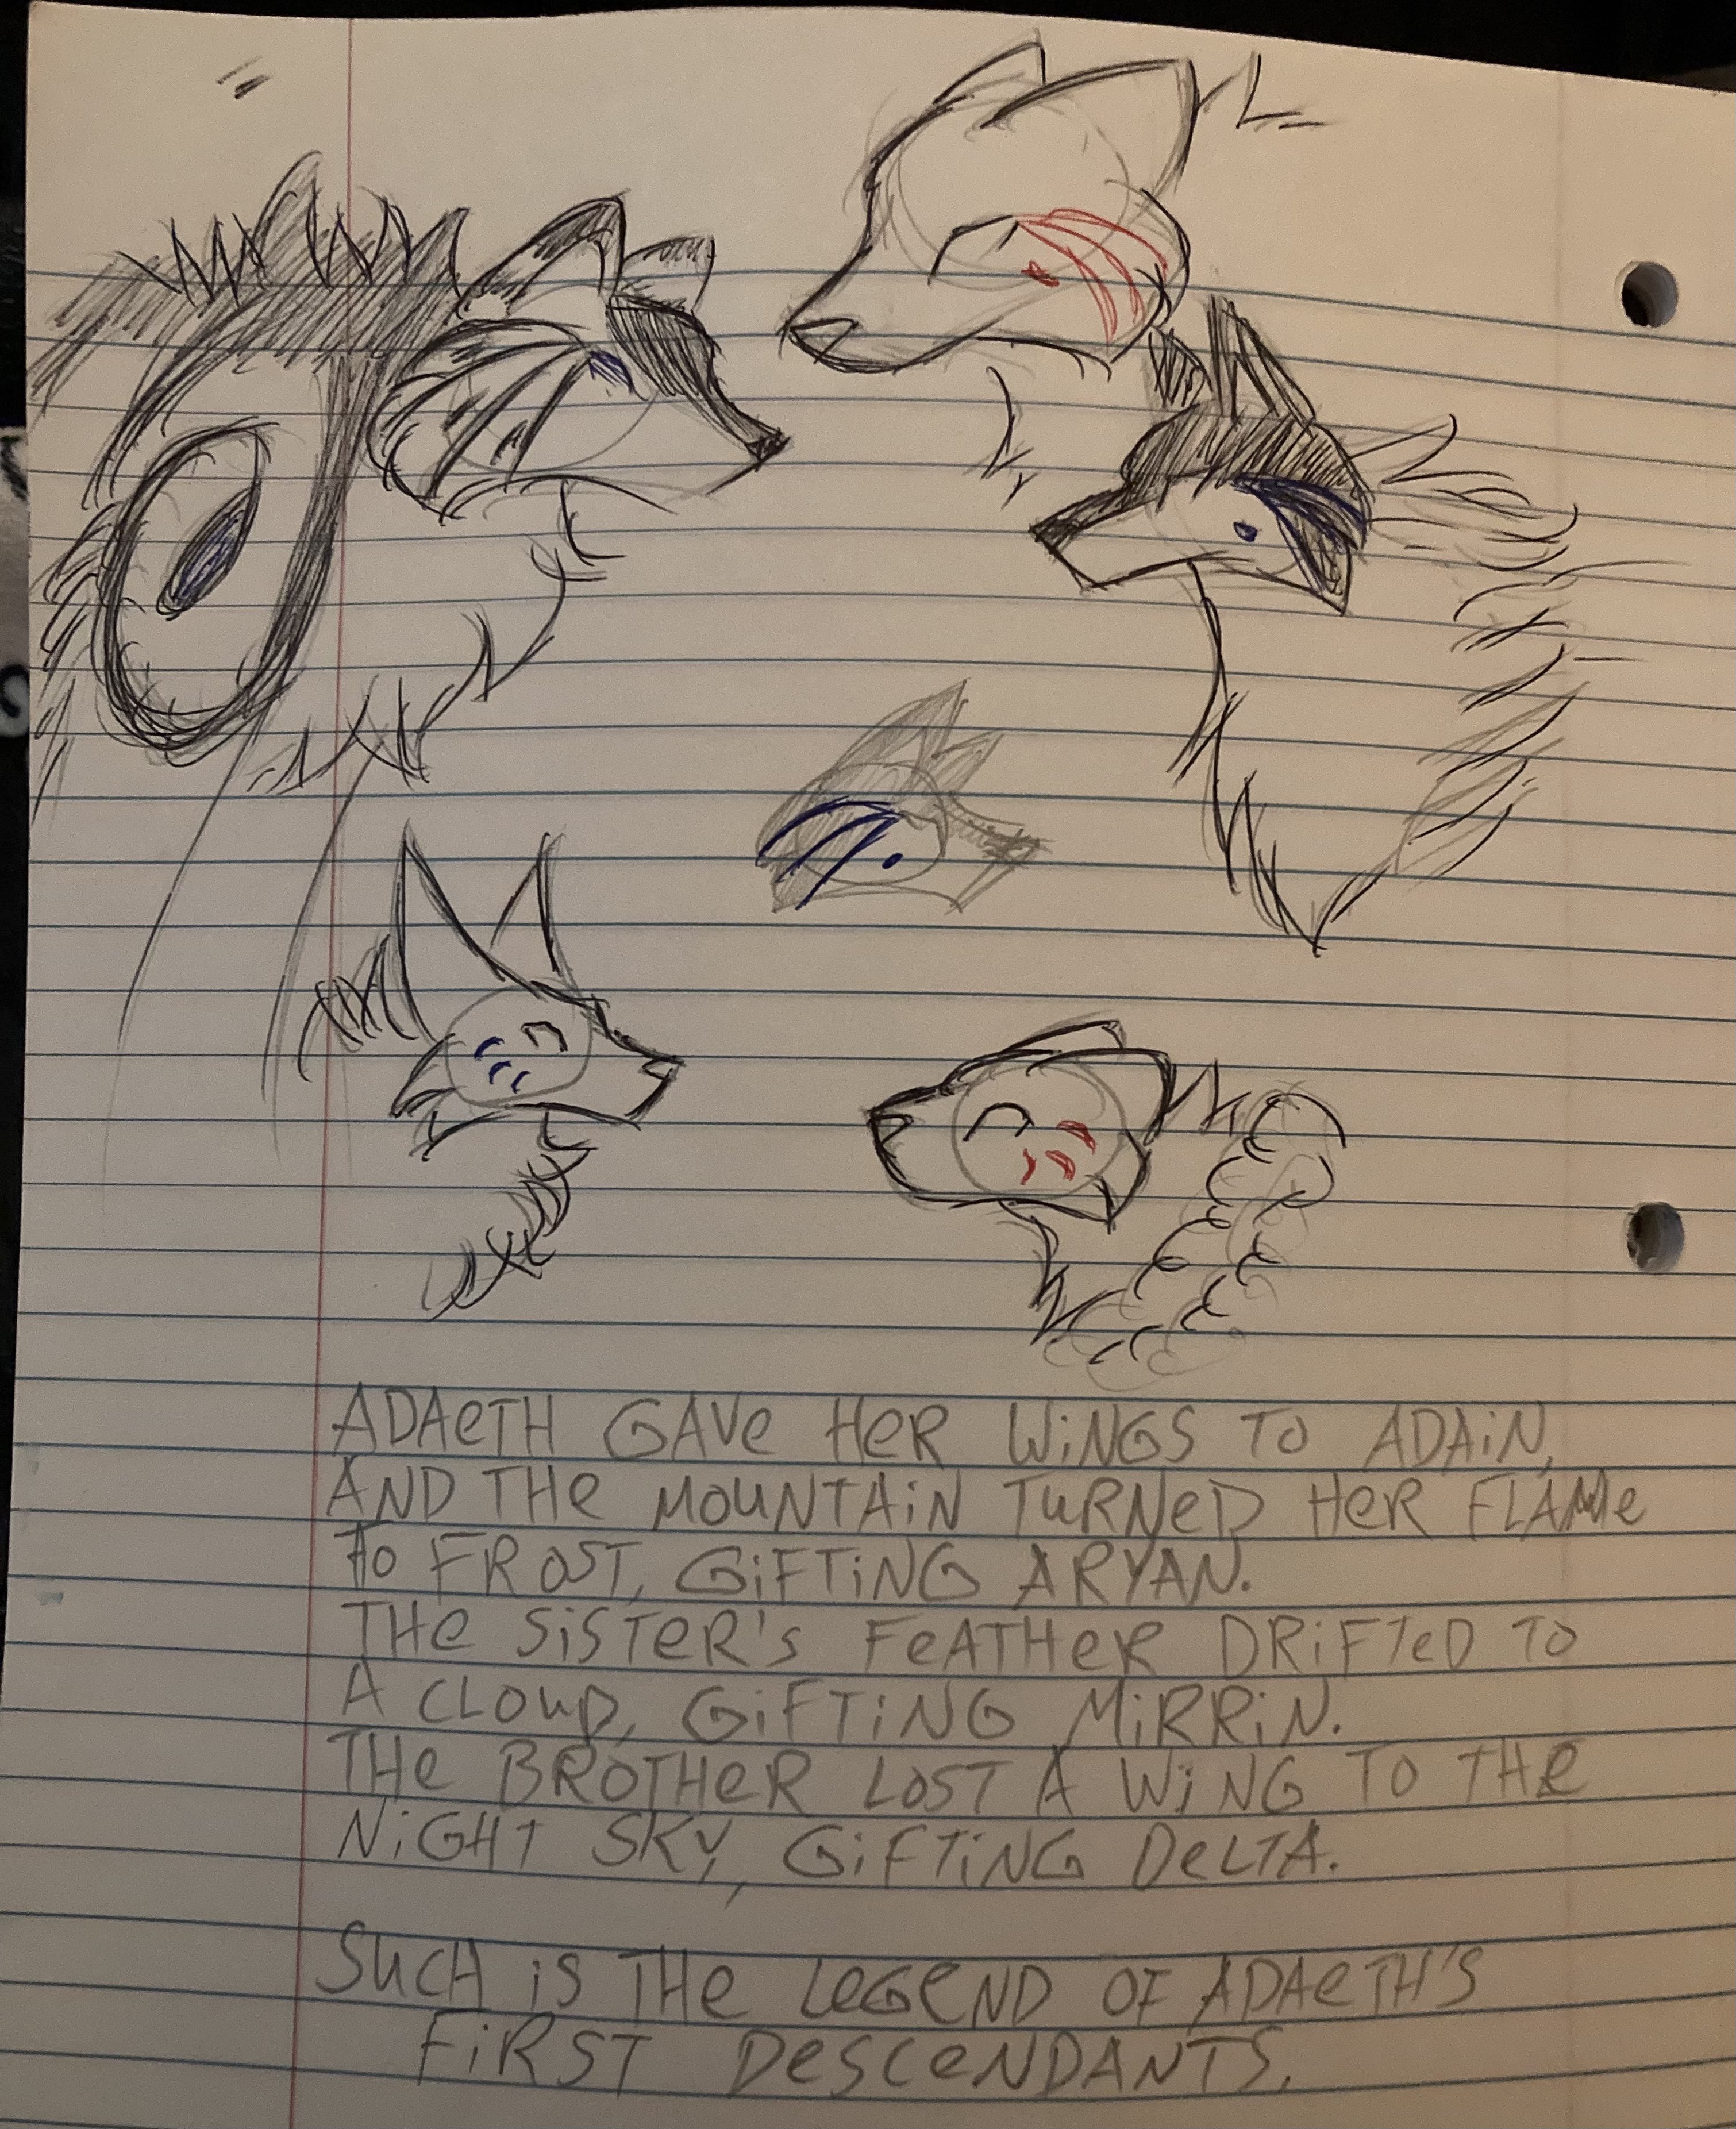 ADAeTH GAVe HeR WiNGS TO ADAiN,
AND THe MOuNTAiN TuRNeD HeR FLAMe
To FROST, GiFTiNG ARYAN.
THe SiSTeR'S FeATHeR DRiFTeD TO
A CLOuD, GiFTiNG MiRRiN.
THe BROTHeR LOST A WiNG TO THe
NiGHT SKY, GiFTiNG DeLTA.
SuCH iS THe LeGeND OF ADAeTH'S
FiRST DeSCeNDANTS.